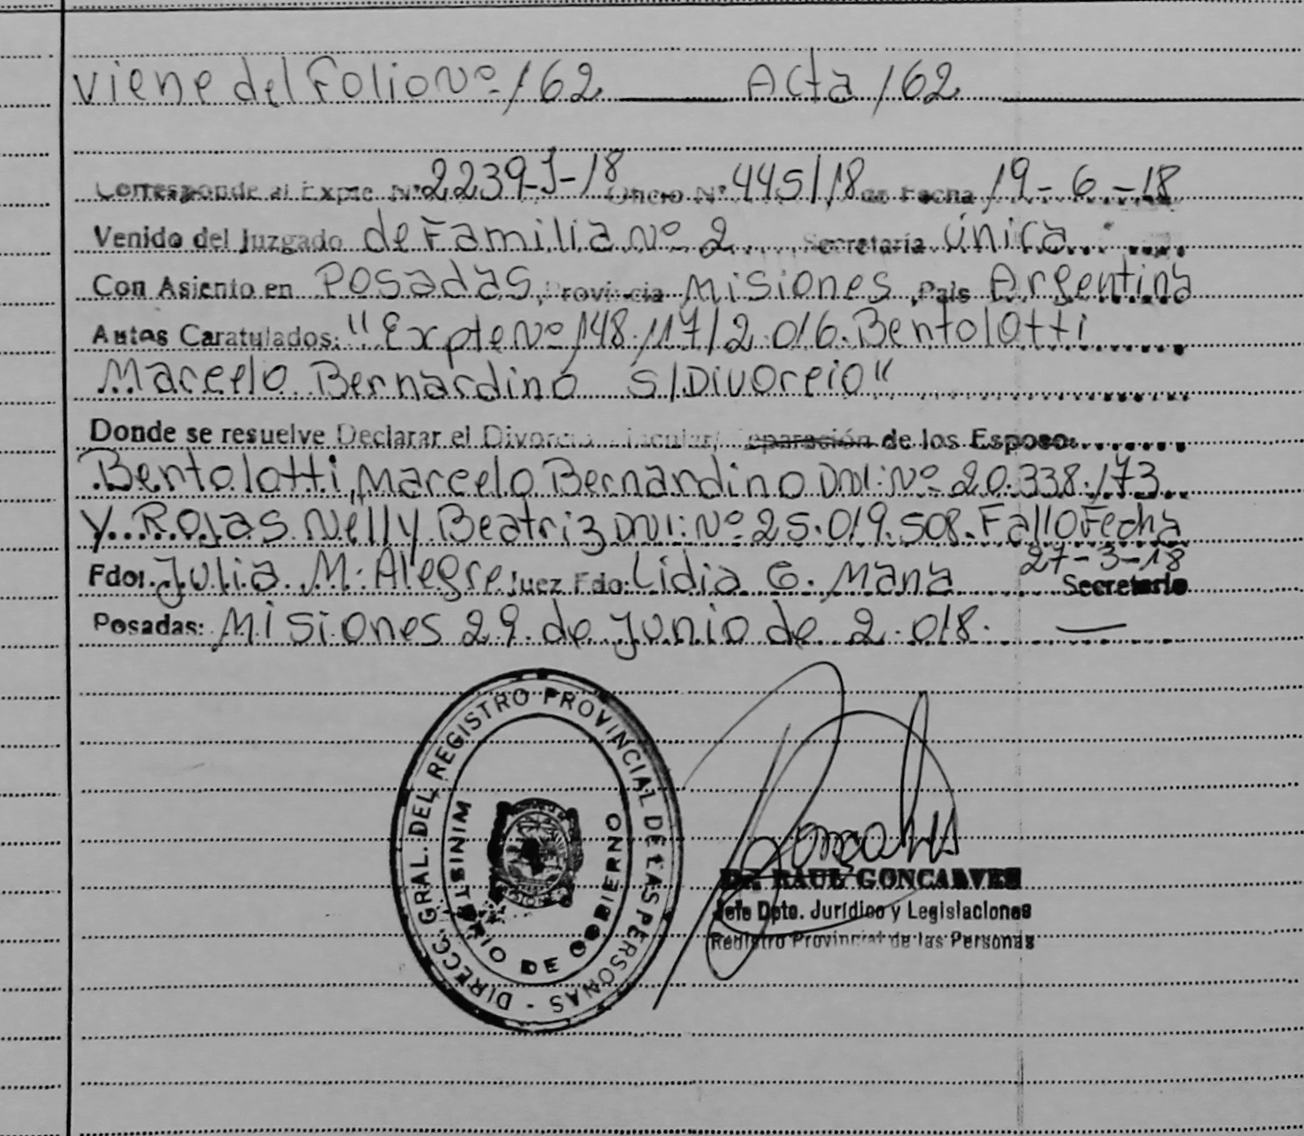 Viene del Folio Nº 162 Acta 162
Corresponde al Expte. Nº 2239-J-18 Oficio Nº 445/18 de Fecha 19-6-18
Venido del Juzgado de Familia Nº 2 Secretaría Única
Con Asiento en Posadas, Provincia Misiones, País Argentina
Autos Caratulados: "Expte Nº 148.117/2.016. Bentolotti
Marcelo Bernardino S/Divorcio"
Donde se resuelve Declarar el Divorcio Vincular/ Separación de los Esposos
Bentolotti, Marcelo Bernardino DNI: Nº 20.338.173
y Rojas Nelly Beatriz DNI: Nº 25.019.508. Fallo Fecha
27-3-18
Fdo. Julia M. Alegre Juez Fdo: Lidia G. Mana Secretario
Posadas: Misiones 29 de Junio de 2.018.
DIRECC. GRAL. DEL REGISTRO PROVINCIAL DE LAS PERSONAS -
MINISTERIO DE GOBIERNO
MISIONES
Dr. RAUL GONCALVES
Jefe Dpto. Jurídico y Legislaciones
Registro Provincial de las Personas